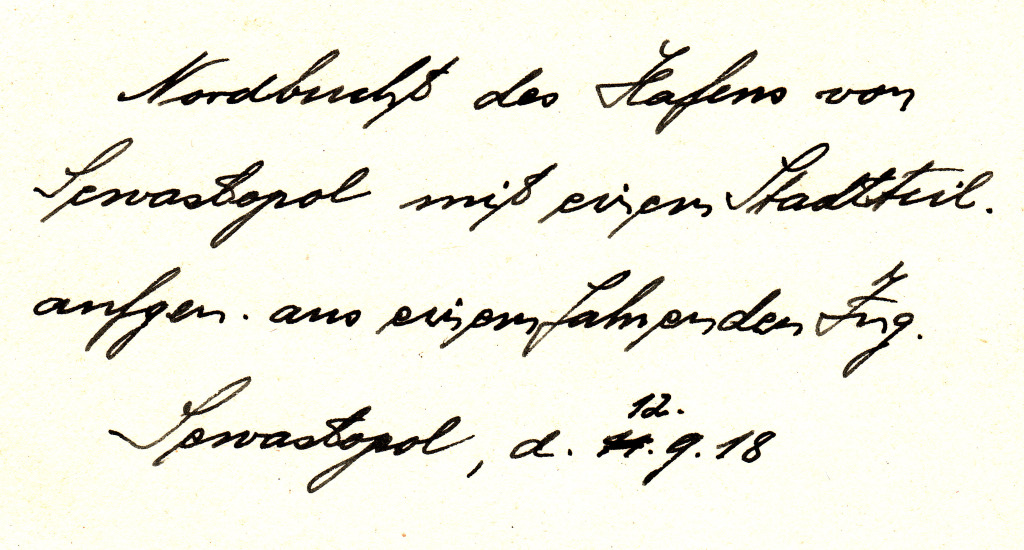 Nordbucht des Hafens von
Sewastopol mit einem Stadtteil.
aufgen. aus einem fahrenden Zug.
Sewastopol, d. 12. 9. 18